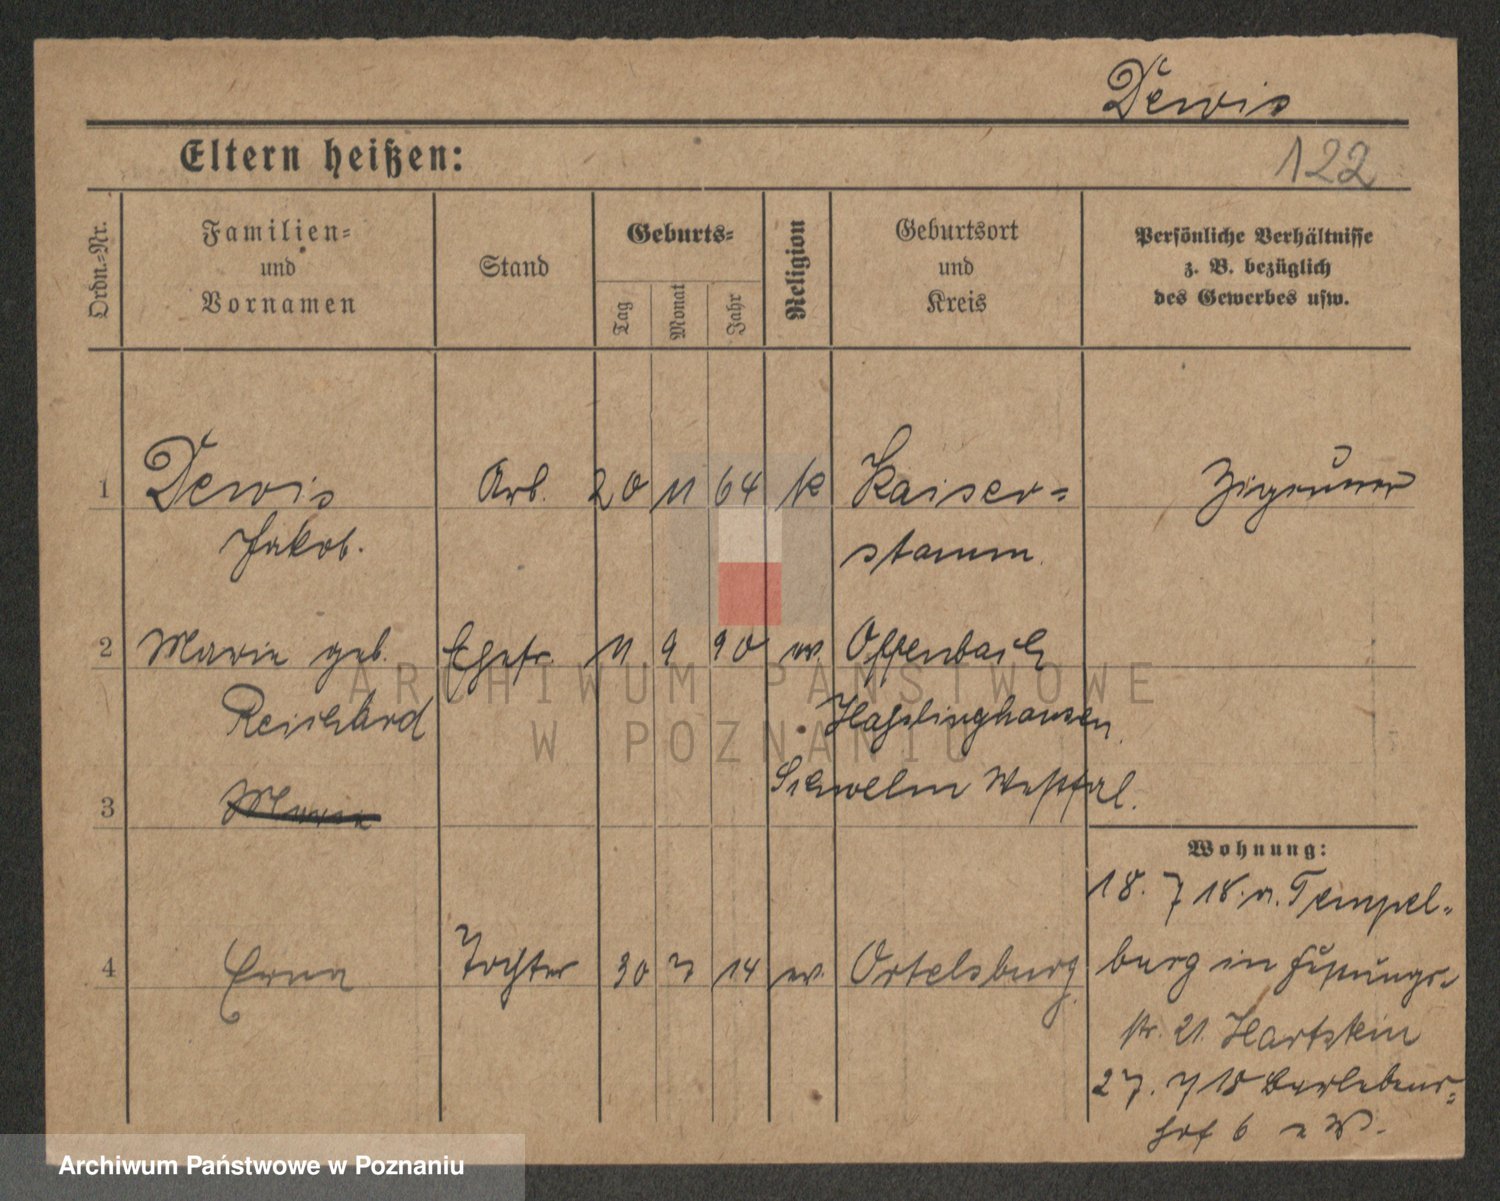 Dewis
Eltern heißen:
122
Ordn.-Nr.
Familien-
und
Vornamen
Stand
Geburts-
Tag
Monat
Jahr
Religion
Geburtsort
und
Kreis
Persönliche Verhältnisse
z. B. bezüglich
des Gewerbes usw.
1 Dewis Arb. 20 11 64 k Kaiser- Zigeuner
Jakob. stamm.
2 Marie geb. Ehefr. 11 9 90 ev Offenbach
Reichard Haßlinghausen
Schwelm Westfal.
3
Wohnung:
18. 7 18. v. Tempel-
4 Erna Tochter 30 7 14 ev. Ortelsburg
burg in
str. 21. Hartstein
27. 7 18
hof 6
ARCHIWUM PAŃSTWOWE
W POZNANIU
Archiwum Państwowe w Poznaniu